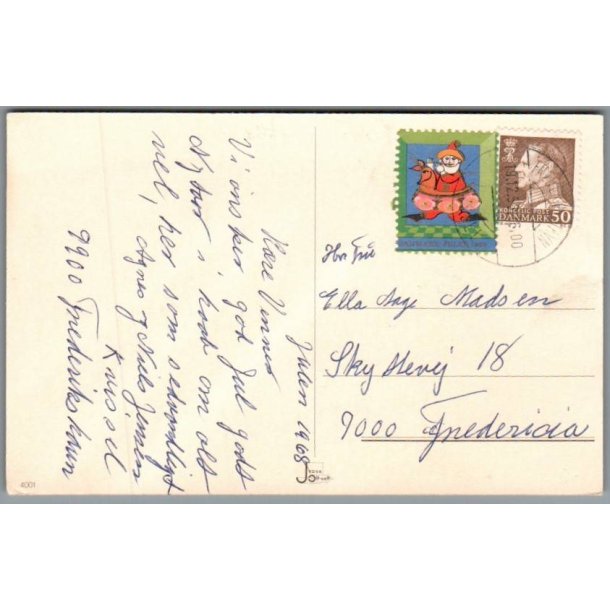 Julen 1968
Kære Venner
Vi önsker god Jul godt
Nytaar i haab om alt
vel, her som sedvanligt
Agnes og Niels Jensen
Knivsel
9900 Frederikshavn
4001
DANMARK JULEN 1968
KONGELIG POST
DANMARK 50
Hr Fru
Ella Aage Madsen
Skyttevej 18
7000 Fredericia